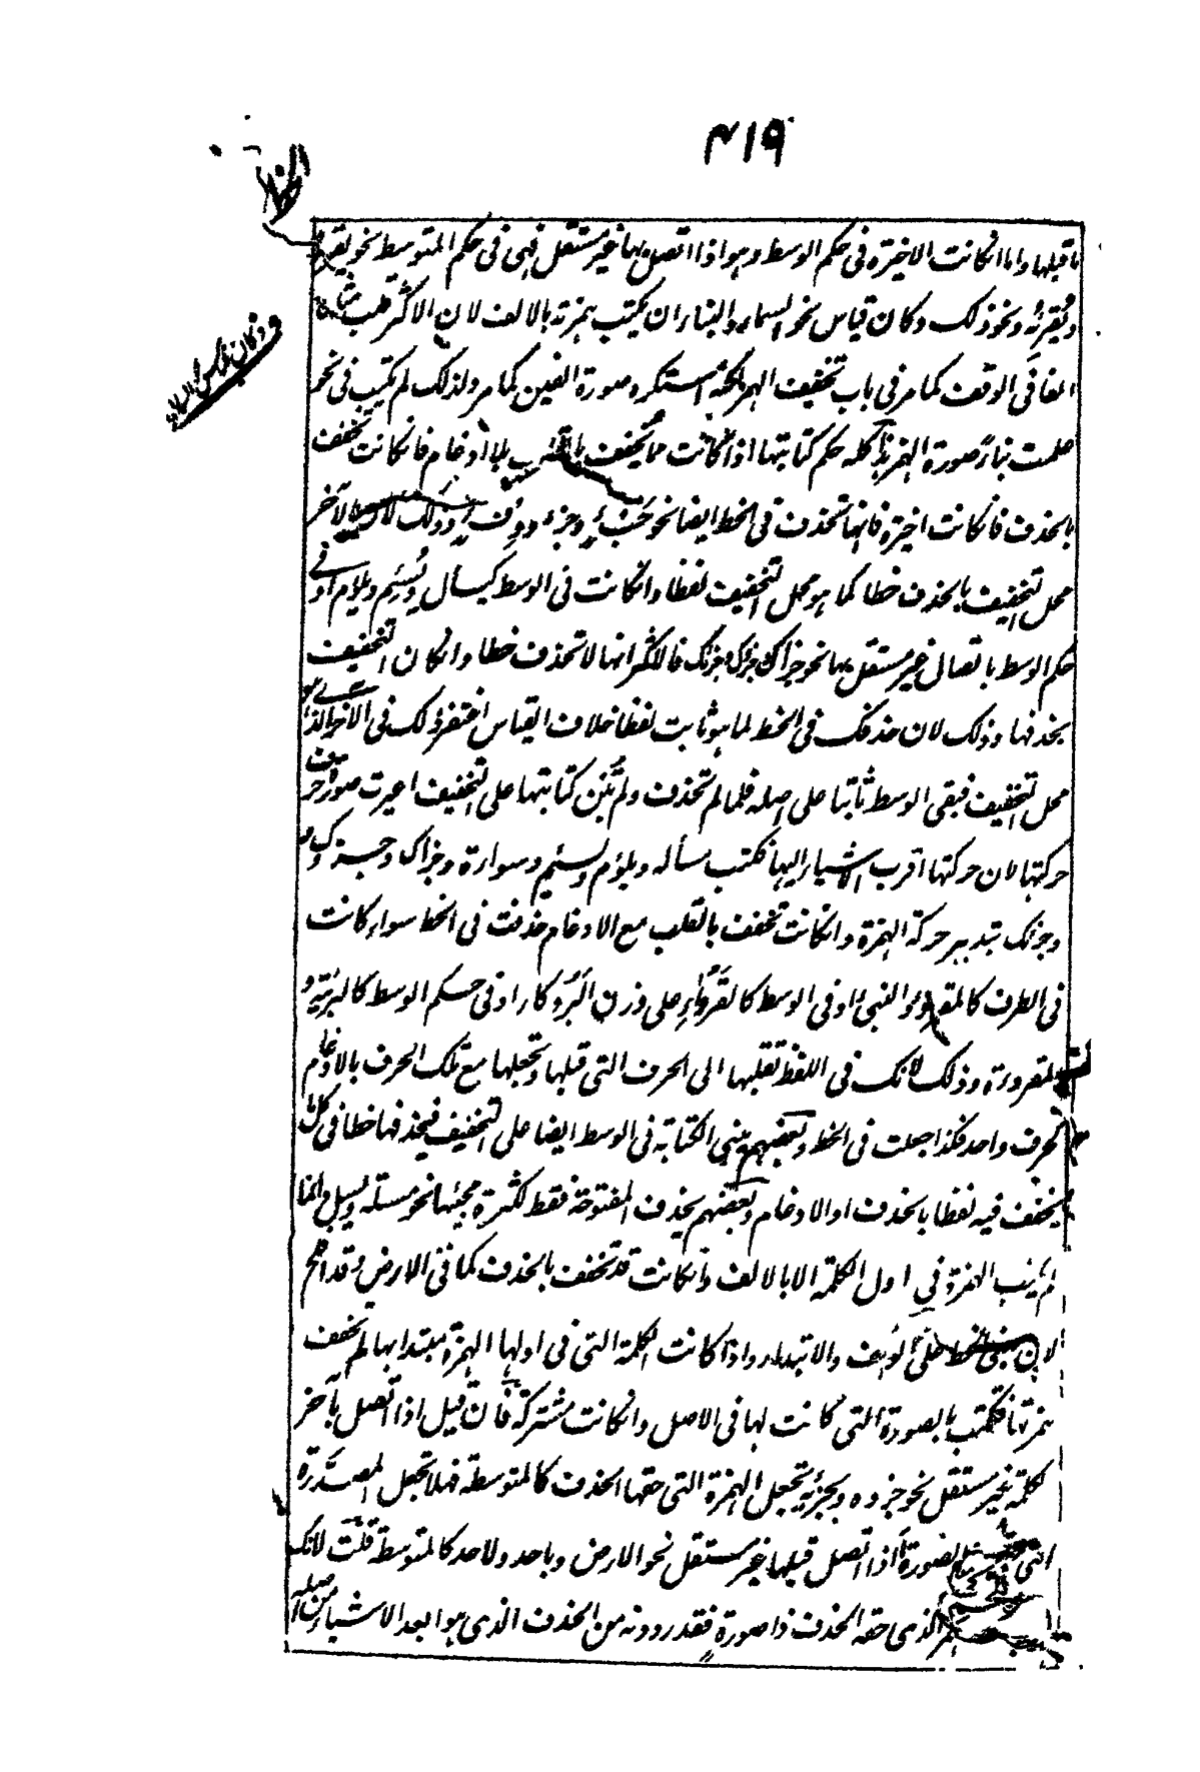 ٤١٩
الخط
ما قبلها واما انكانت الاخيرة فى حكم الوسط وهو اذا اتصل بها غير مستقل فهى فى حكم المتوسط نحو يقرؤه
ويقرئه ونحو ذلك وكان قياس نحو السماء والبناء ان يكتب همزته بالالف لان الاكثر قلب مثلها
الفا فى الوقف كما مر فى باب تخفيف الهمزة لكنه استكره صورة الفين كما مر ولذلك لم يكتب فى نحو
علمت نبأ صورة الهمزة هذا كله حكم كتابتها اذا كانت مما يخفف بالقلب بلا ادغام فانكانت تخفف
بالحذف فانكانت اخيرة فانها تحذف فى الخط ايضا نحو خبء وجزء ودفء وذلك لان الآخر
محل التخفيف بالحذف خطا كما هو محل التخفيف لفظا وانكانت فى الوسط كيسأل ويسئم ويلؤم او فى
حكم الوسط باتصال غير مستقل بها نحو جزأك جزؤك وجزئك فالاكثر انها لا تحذف خطا وانكان التخفيف
بحذفها وذلك لان حذفك فى الخط لما هو ثابت لفظا خلاف القياس اغتفر ذلك فى الآخر الذى هو
محل التخفيف فبقى الوسط ثابتا على اصله فلما لم تحذف ولم تبن كتابتها على التخفيف اعيرت صورة حرف
حركتها لان حركتها اقرب الاشياء اليها فكتب مسألة ويلؤم ويسئم وسوأة وجزأك وجزؤك
وجزئك بتدبير حركة الهمزة وانكانت تخفف بالقلب مع الادغام حذفت فى الخط سواء كانت
فى الطرف كالمقروء والنبىء او فى الوسط كالقروء على وزن البروكاء او فى حكم الوسط كالبرئية و
المقروءة وذلك لانك فى اللفظ تقلبها الى الحرف التى قبلها وتجعلها مع تلك الحرف بالادغام
كحرف واحد فكذا جعلت فى الخط وبعضهم يبنى الكتابة فى الوسط ايضا على التخفيف فيحذفها خطا فى كل ما
يخفف فيه لفظا بالحذف او الادغام وبعضهم يحذف المفتوحة فقط لكثرة مجيئها نحو مسئلة ويسل وانما
لم يكتب الهمزة فى اول الكلمة الا بالالف وانكانت قد تخفف بالحذف كما فى الارض وقد افلح
لان مبنى الخط على الوقف والابتداء واذا كانت الكلمة التى فى اولها الهمزة مبتدأ بها لم تخفف
همزتها فتكتب بالصورة التى كانت لها فى الاصل وانكانت مشتركة فان قيل اذا اتصل بآخر
الكلمة غير مستقل نحو جزءه ويجزئه تجعل الهمزة التى حقها الحذف كالمتوسطة فهلا تجعل المصدرة
التى الصورة اذا اتصل قبلها غير مستقل نحو الارض وباحد ولاحد كالمتوسطة قلت لانك
الذى حقه الحذف ذا صورة فقد رددته من الحذف الذى هو ابعد الاشياء من اصله